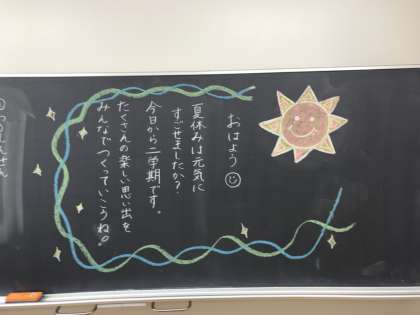 おはよう
夏休みは元気に
すごせましたか?
今日から二学期です。
たくさんの楽しい思い出を
みんなでつくっていこうね!